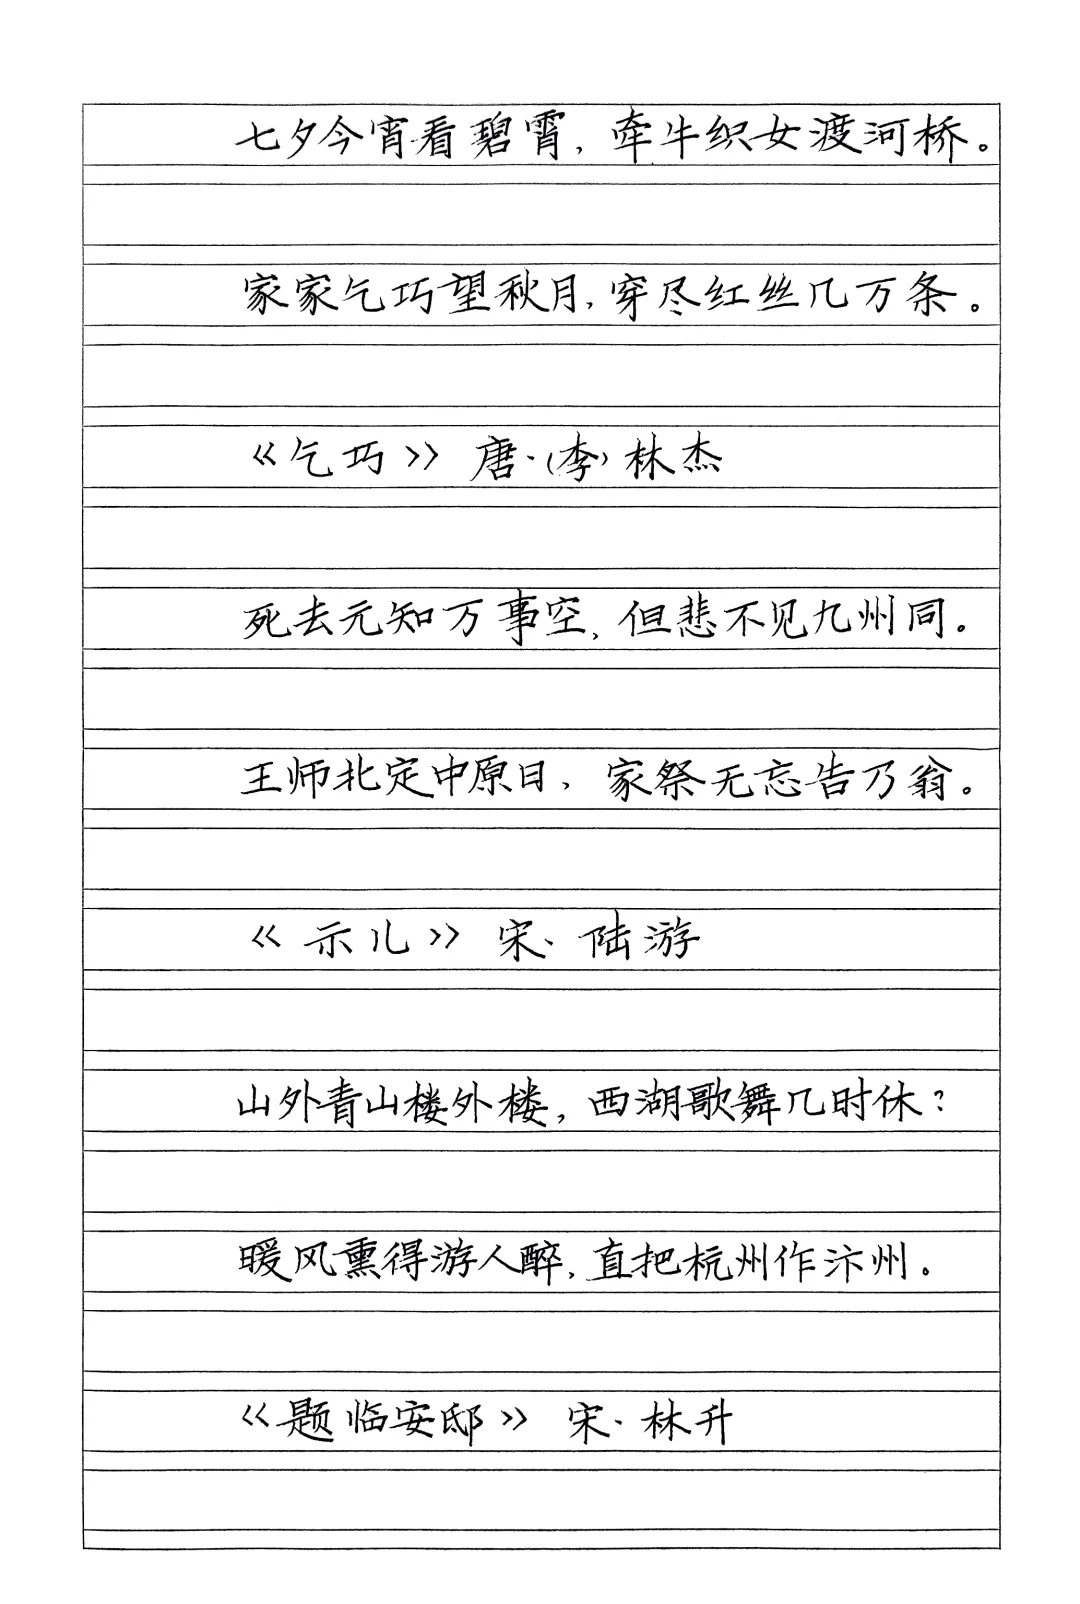 七夕今宵看碧霄，牵牛织女渡河桥。
家家乞巧望秋月，穿尽红丝几万条。
《乞巧》 唐·（李）林杰
死去元知万事空，但悲不见九州同。
王师北定中原日，家祭无忘告乃翁。
《示儿》 宋、陆游
山外青山楼外楼，西湖歌舞几时休？
暖风熏得游人醉，直把杭州作汴州。
《题临安邸》 宋·林升